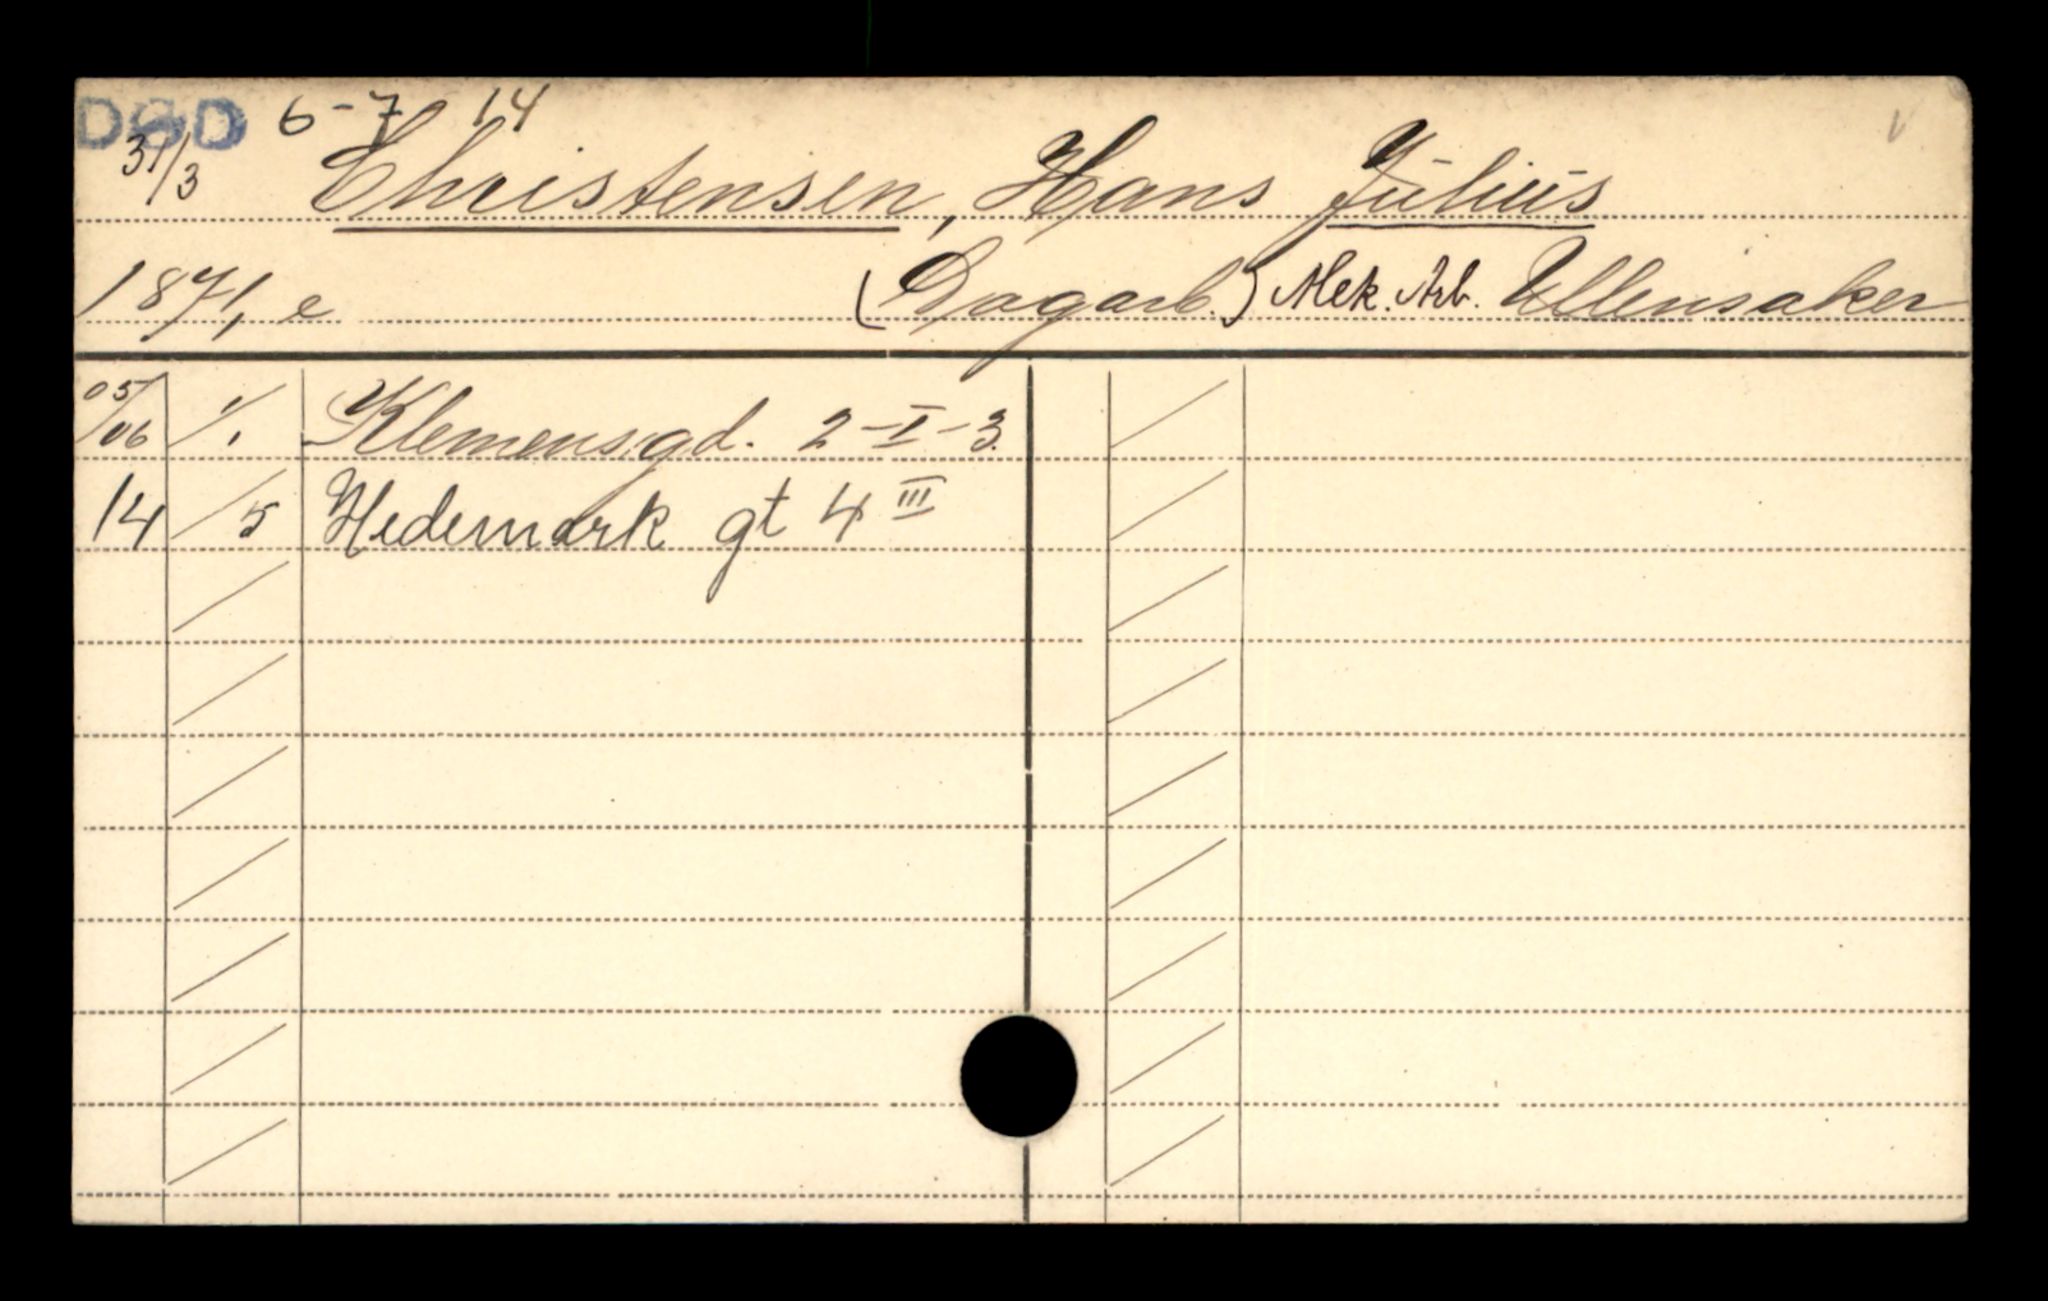 DØD 6-7 14
31/3 Christensen, Hans Julius
1871, e (Dagarb.) Mek. Arb. Ullensaker
05/06 1/1 Klemensgd. 2-I-3.
14 /5 Hedemark gt 4 III